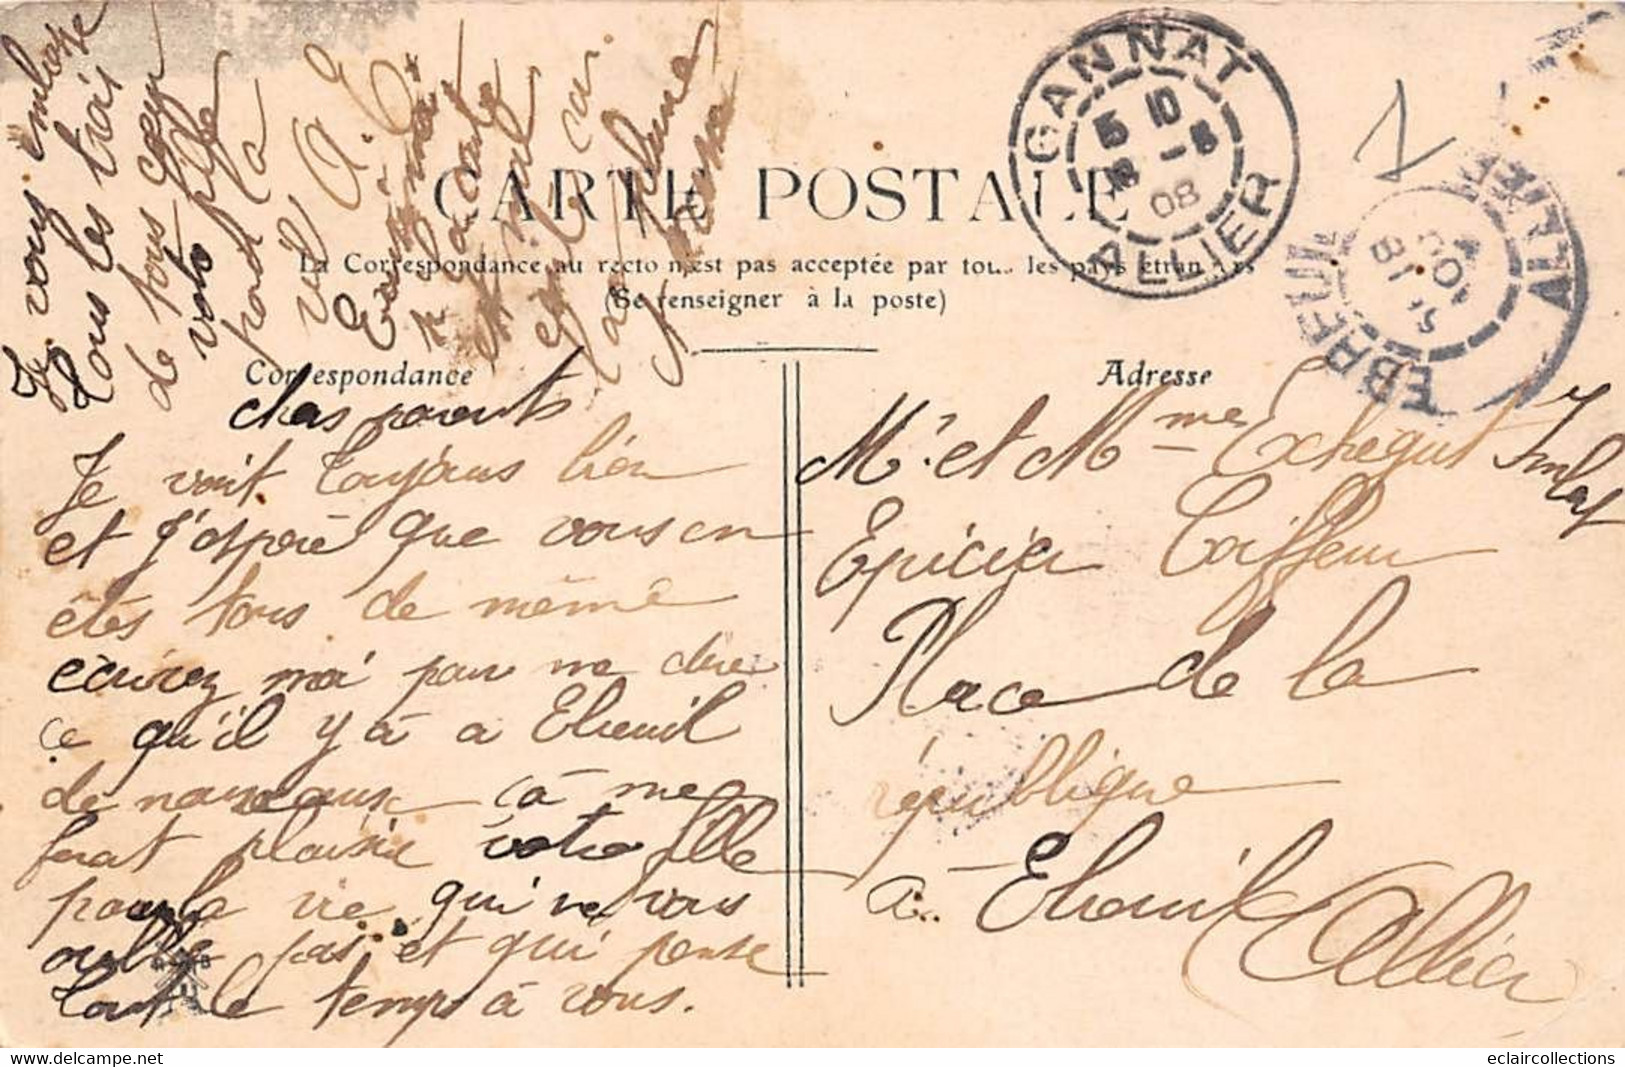 CARTE POSTALE
La Correspondance au recto n'est pas acceptée par tous les pays étrangers
(Se renseigner à la poste)
Correspondance
Adresse
chers parents
Je vait toujours bien
et j'esperè que vous en
êtes tous de même
écrivez moi pour me dire
ce qu'il y à a Ebreuil
de nouveaux çà me
ferat plaisir votre fille
pour la vie qui ne vous
oublie pas et qui pense
tout le temps à vous.
Je vous embrasse
tous les trois
de tous cœur
votre fille
pour la
vie
Ecrivez moi
la carte
et mal
car
la plume
M.r et M.me Echégut
Epicier Coiffeur
Place de la
république
a Ebreuil
Allier
GANNAT
5 10
18 -8
08
ALLIER
EBREUIL
ALLIER
eclaircollections